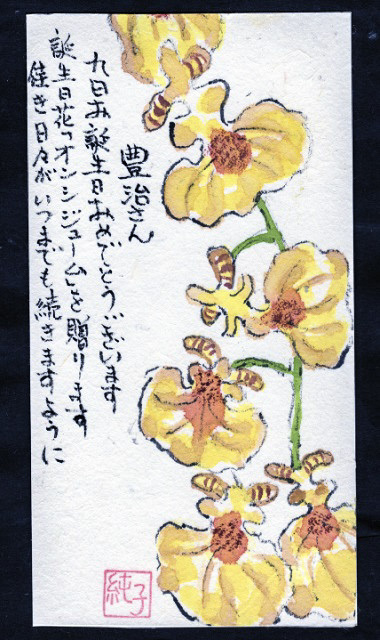 豊治さん
九日お誕生日おめでとうございます
誕生日花「オンシジューム」を贈ります
佳き日々がいつまでも続きますように
純子